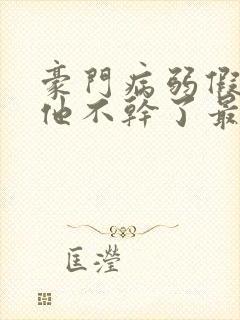 豪門病弱假
他不幹了最
匡瀅